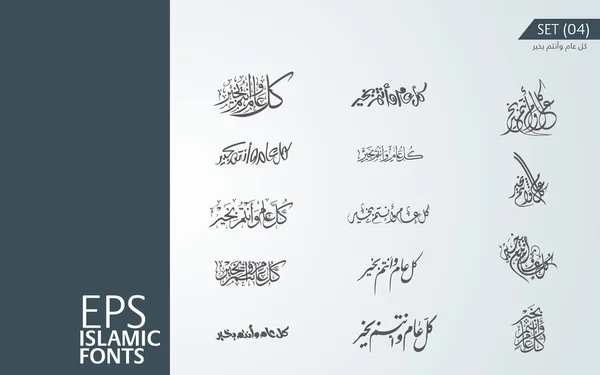 SET (04)
كل عام وأنتم بخير
كل عام وأنتم بخير
كل عام وأنتم بخير
كل عام وأنتم بخير
كل عام وأنتم بخير
كل عام وانتم بخير
كل عام وأنتم بخير
كل عام وأنتم بخير
كل عام وأنتم بخير
كل عام وأنتم بخير
كل عام وأنتم بخير
كل عام وأنتم بخير
كل عام وانتم بخير
كل عام وأنتم بخير
كل عام وأنتم بخير
كل عام وأنتم بخير
EPS
ISLAMIC
FONTS